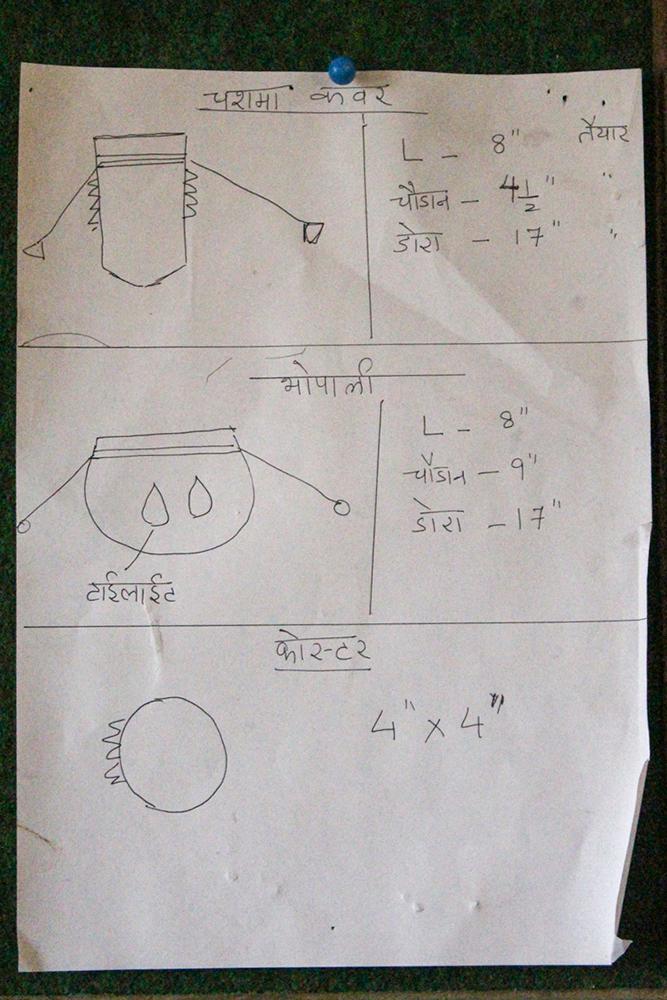 चशमा कवर
L - 8" तैयार
चौडान - 4 1/2" "
डोरा - 17" "
भोपाली
L - 8"
चौडान - 9"
डोरा - 17"
टाईलाईट
कोस्टर
4" x 4"